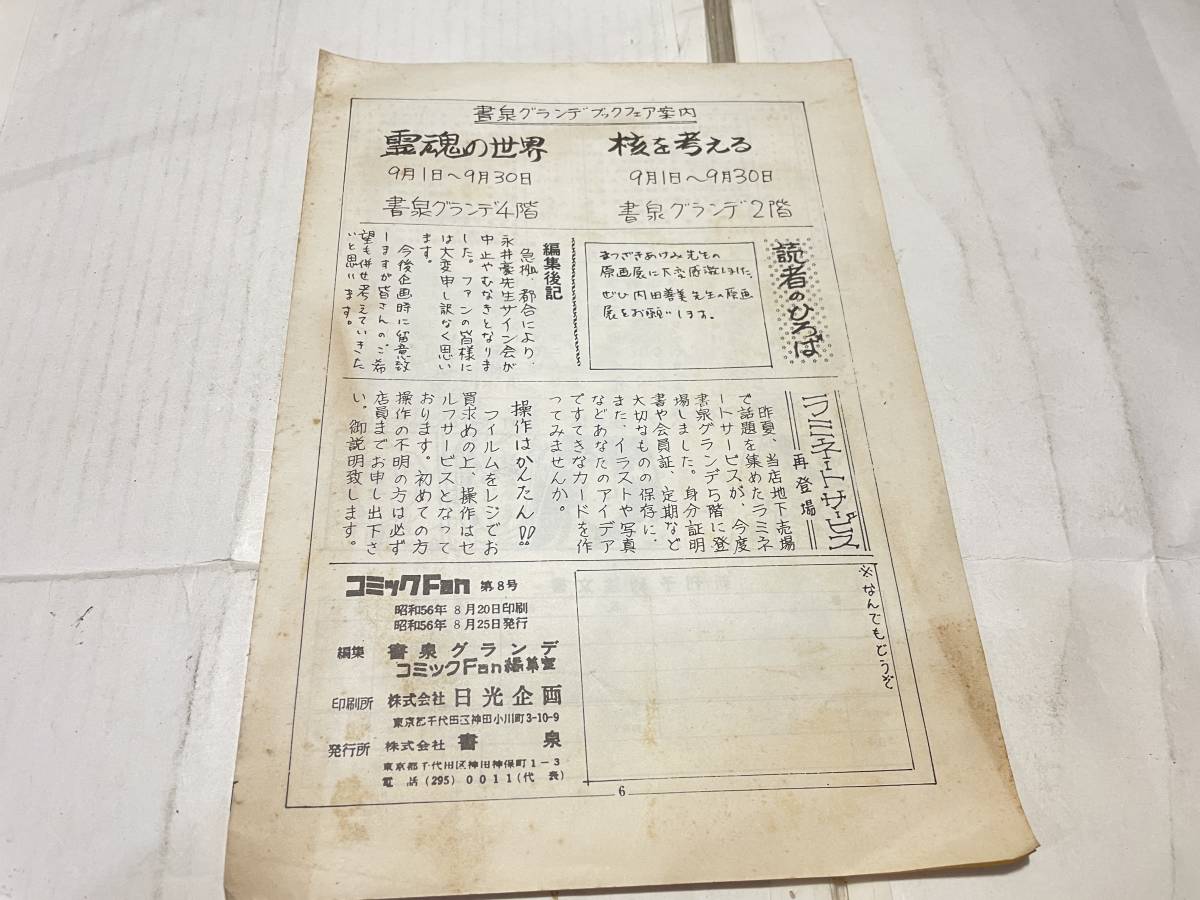 書泉グランデブックフェア案内
霊魂の世界
9月1日〜9月30日
書泉グランデ4階
核を考える
9月1日〜9月30日
書泉グランデ2階
読者のひろば
まつざきあけみ先生の
原画展に大変感激しました。
ぜひ内田善美先生の原画
展をお願いします。
編集後記
急拠、都合により、
永井豪先生サイン会が
中止やむなきとなりま
した。ファンの皆様に
は大変申し訳なく思い
ます。
今後企画時に留意致
しますが皆さんのご希
望も併せ考えていきた
いと思います。
ラミネートサービス
再登場
昨夏、当店地下売場
で話題を集めたラミネ
ートサービスが、今度
書泉グランデ5階に登
場しました。身分証明
書や会員証、定期など
大切なものの保存に、
また、イラストや写真
などあなたのアイデア
ですてきなカードを作
ってみませんか。
操作はかんたん!!
フィルムをレジでお
買求めの上、操作はセ
ルフサービスとなって
おります。初めての方
操作の不明の方は必ず
店員までお申し出下さ
い。御説明致します。
※なんでもどうぞ
コミックFan 第8号
昭和56年 8月20日印刷
昭和56年 8月25日発行
編集 書泉グランデ
コミックFan編集室
印刷所 株式会社 日光企画
東京都千代田区神田小川町3-10-9
発行所 株式会社 書泉
東京都千代田区神田神保町1-3
電話(295)0011(代表)
6